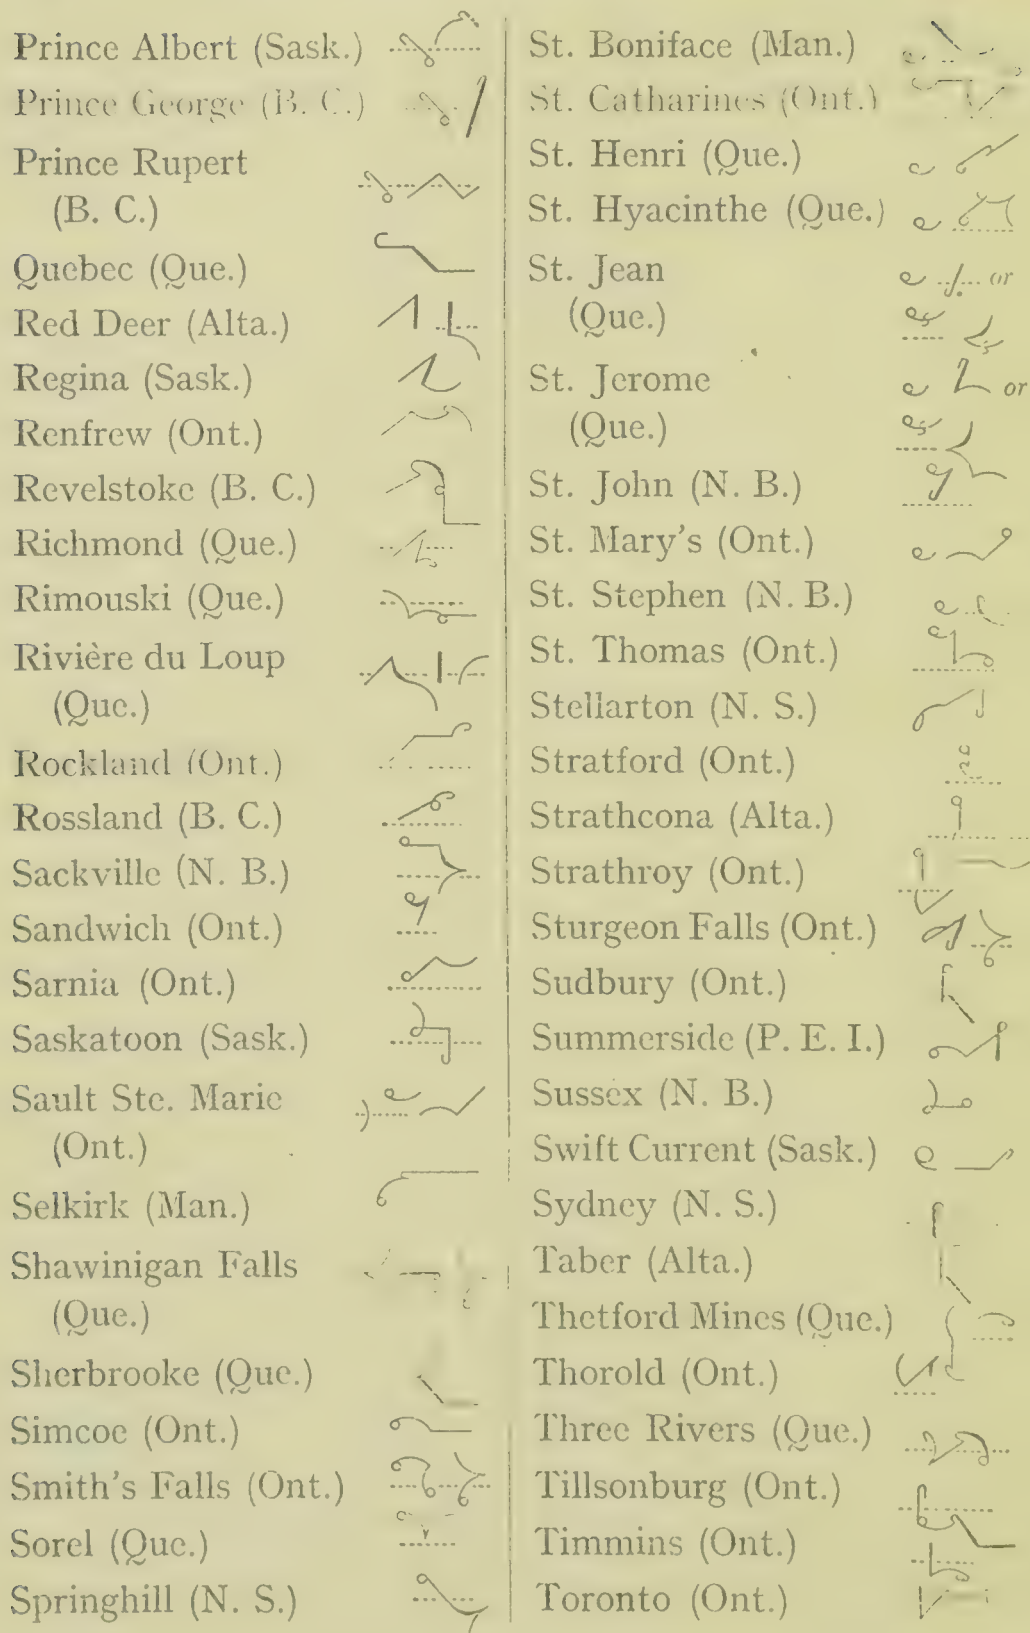 Prince Albert (Sask.)
Prince George (B. C.)
Prince Rupert
(B. C.)
Quebec (Que.)
Red Deer (Alta.)
Regina (Sask.)
Renfrew (Ont.)
Revelstoke (B. C.)
Richmond (Que.)
Rimouski (Que.)
Rivière du Loup
(Que.)
Rockland (Ont.)
Rossland (B. C.)
Sackville (N. B.)
Sandwich (Ont.)
Sarnia (Ont.)
Saskatoon (Sask.)
Sault Ste. Marie
(Ont.)
Selkirk (Man.)
Shawinigan Falls
(Que.)
Sherbrooke (Que.)
Simcoe (Ont.)
Smith's Falls (Ont.)
Sorel (Que.)
Springhill (N. S.)
St. Boniface (Man.)
St. Catharines (Ont.)
St. Henri (Que.)
St. Hyacinthe (Que.)
St. Jean or
(Que.)
St. Jerome or
(Que.)
St. John (N. B.)
St. Mary's (Ont.)
St. Stephen (N. B.)
St. Thomas (Ont.)
Stellarton (N. S.)
Stratford (Ont.)
Strathcona (Alta.)
Strathroy (Ont.)
Sturgeon Falls (Ont.)
Sudbury (Ont.)
Summerside (P. E. I.)
Sussex (N. B.)
Swift Current (Sask.)
Sydney (N. S.)
Taber (Alta.)
Thetford Mines (Que.)
Thorold (Ont.)
Three Rivers (Que.)
Tillsonburg (Ont.)
Timmins (Ont.)
Toronto (Ont.)